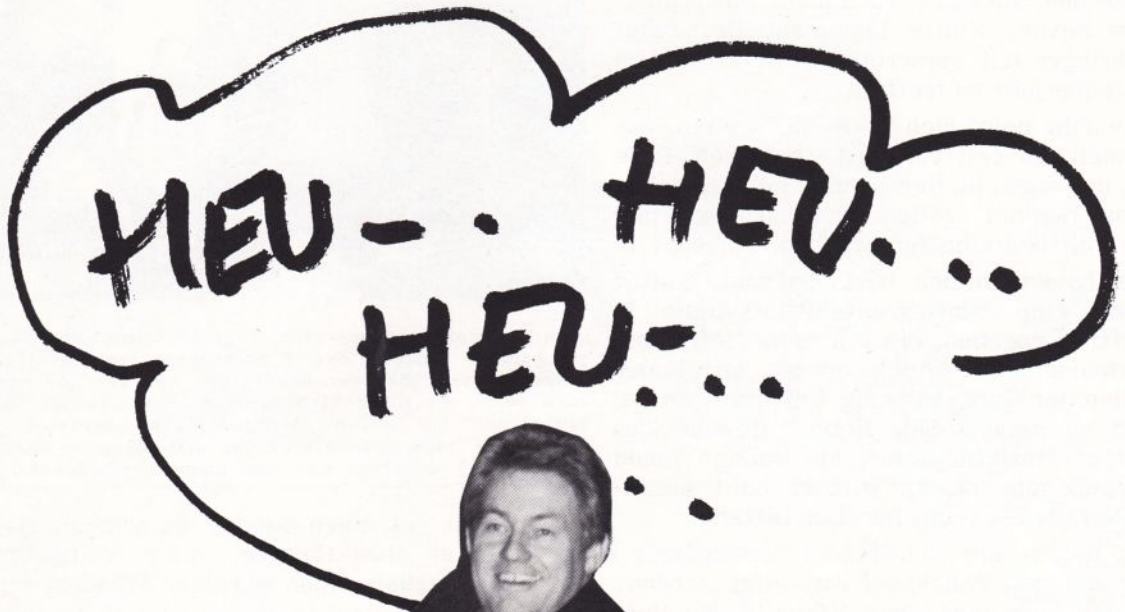 HEU-. HEU...
HEU-...